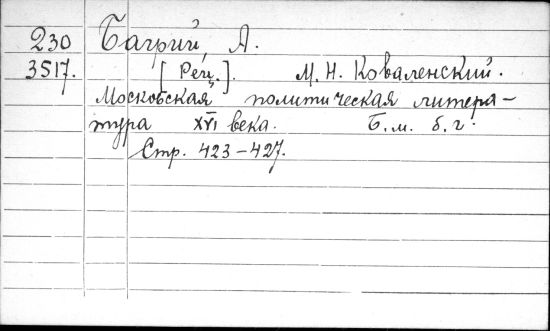 230 Багрий, А.
3517. [Рец.]. М. Н. Коваленский.
Московская политическая литера-
тура XVI века. Б.м. б.г.
Стр. 423-427.